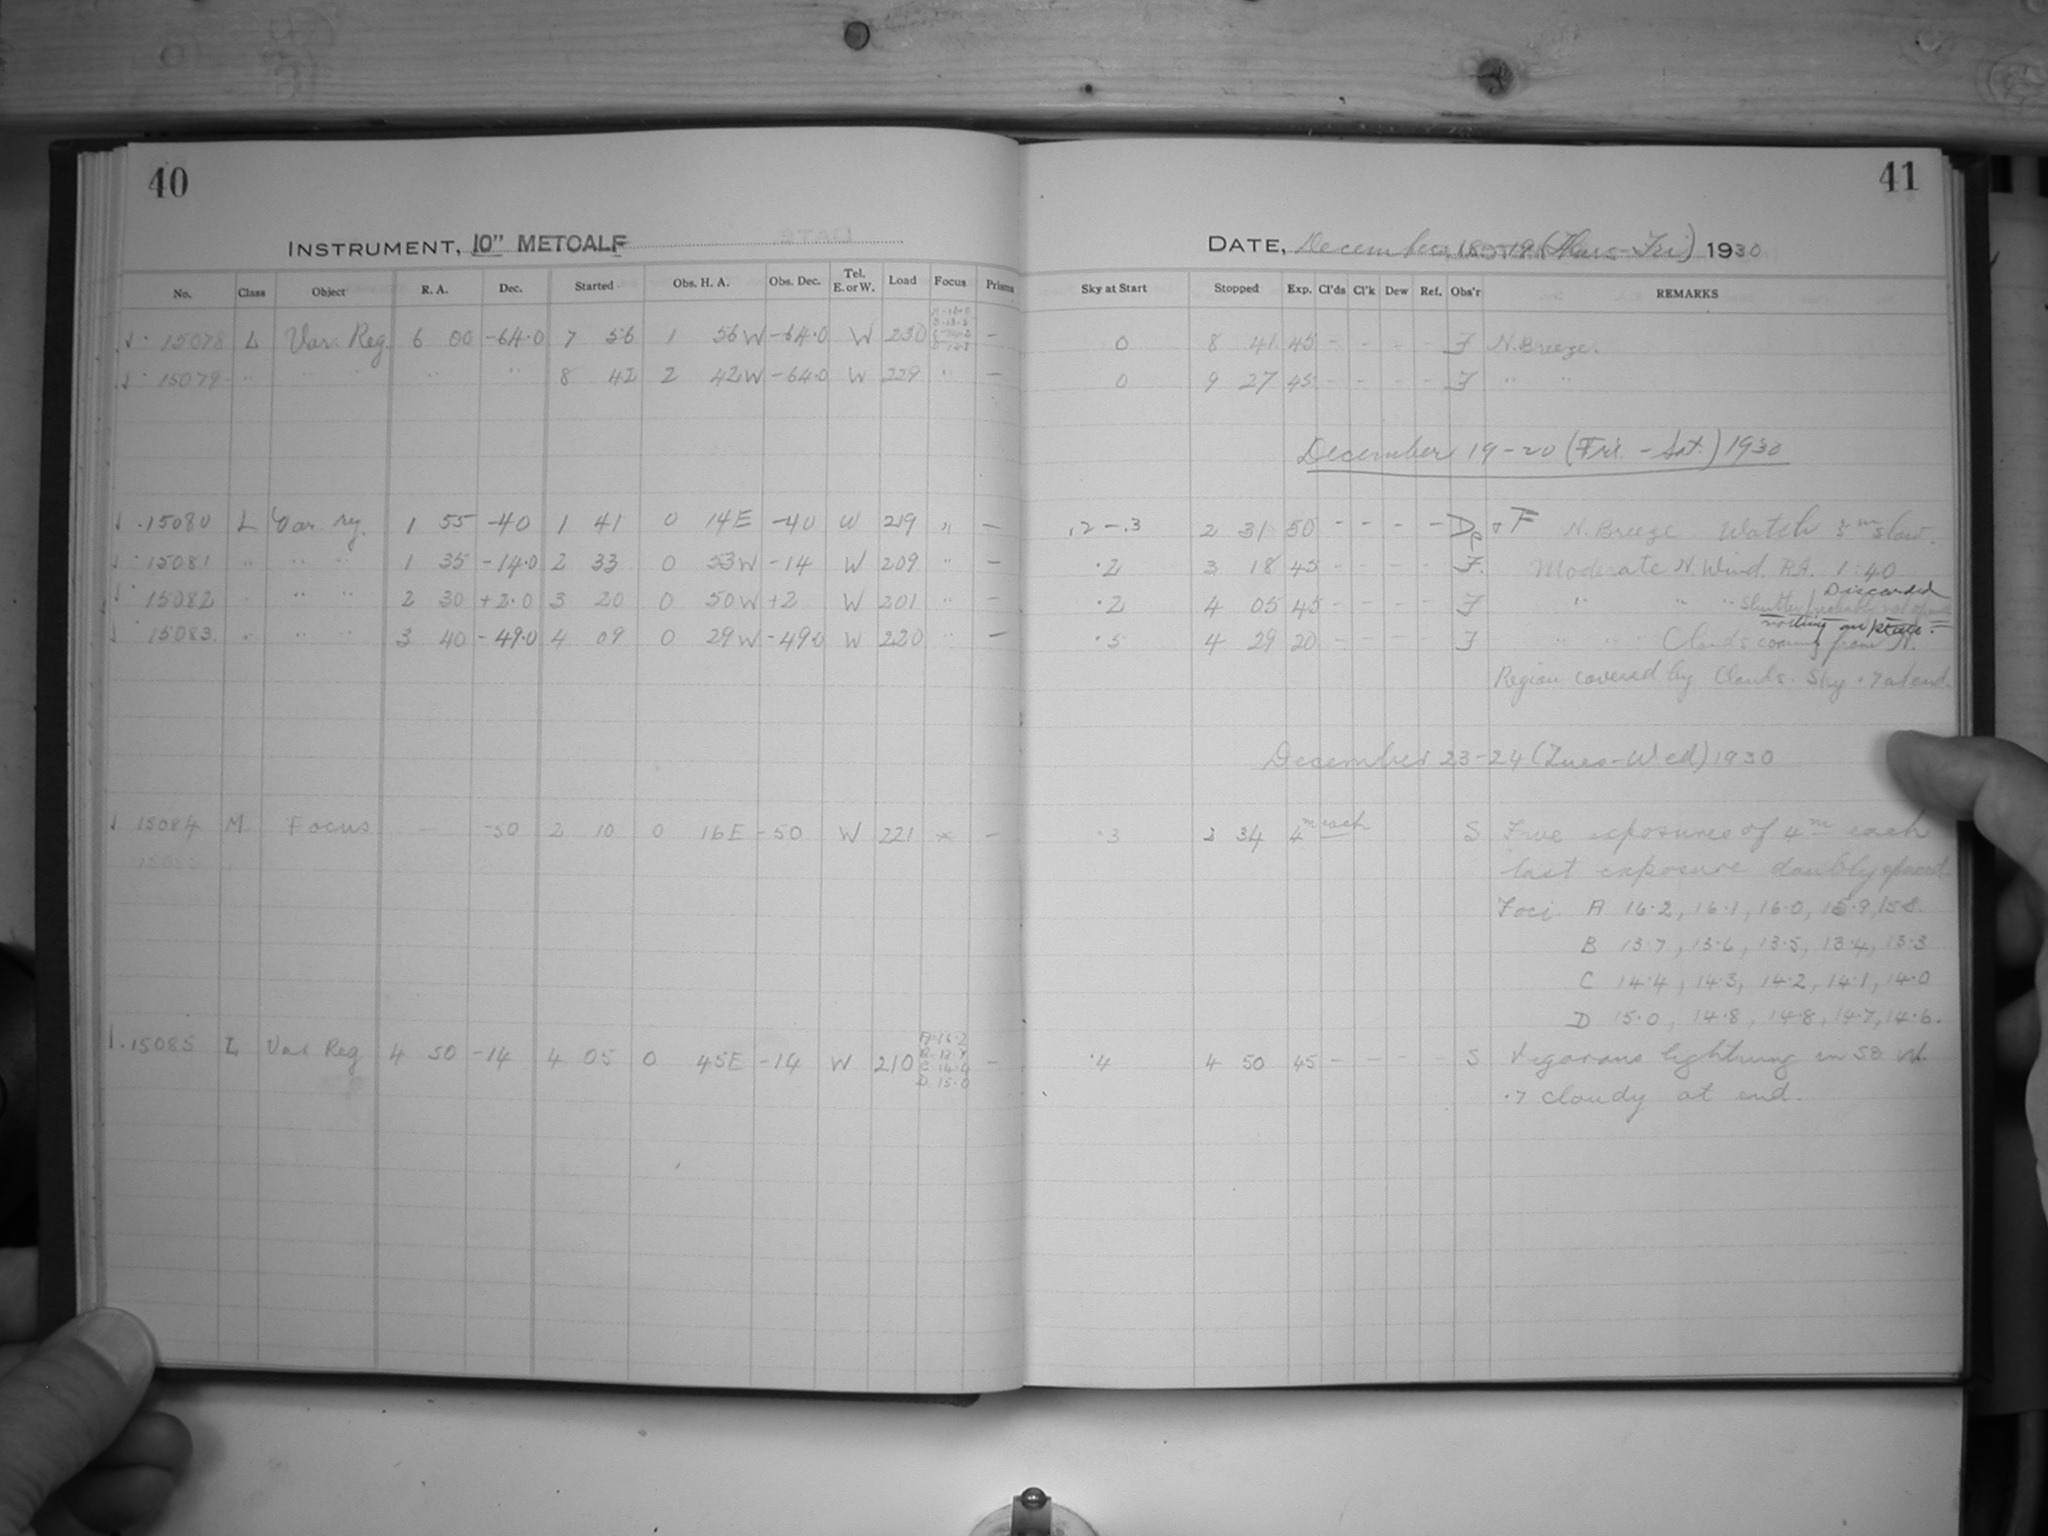 40
INSTRUMENT, 10" METCALF
No. Class Object R. A. Dec. Started Obs. H. A. Obs. Dec. Tel. E. or W. Load Focus Prisms
15078 L Var. Reg. 6 00 -64.0 7 56 1 56W -64.0 W 230 —
15079 " " " " " 8 42 2 42W -64.0 W 229 " —
15080 L Var reg. 1 55 -40 1 41 0 14E -40 W 219 " —
15081 " " " 1 35 -14.0 2 33 0 53W -14 W 209 " —
15082 " " " 2 30 +2.0 3 20 0 50W +2 W 201 " —
15083. " " " 3 40 -49.0 4 09 0 29W -49.0 W 220 " —
15084 M Focus — -50 2 10 0 16E -50 W 221 x —
15085 L Var Reg 4 50 -14 4 05 0 45E -14 W 210 A-16.2 C 14.4 D 15.0 —
41
DATE, December 18-19 (Thurs-Fri) 1930
Sky at Start Stopped Exp. Cl'ds Cl'k Dew Ref. Obs'r REMARKS
0 8 41 45 - - - - F N. Breeze.
0 9 27 45 - - - - F " "
December 19-20 (Fri. - Sat.) 1930
.2-.3 2 31 50 - - - - & F N. Breeze. Watch slow.
.2 3 18 45 - - - - F. Moderate N. Wind. RA. 1:40
Discarded
.2 4 05 45 - - - - F " " " Shutter probably not opened
nothing on plate.
.5 4 29 20 - - - - F " " Clouds coming from N.
Region covered by Clouds. Sky .7 at end.
December 23-24 (Tues-Wed) 1930
.3 2 34 4m each S Five exposures of 4m each
last exposure doubly spaced
Foci A 16.2, 16.1, 16.0, 15.9, 15.8.
B 13.7, 13.6, 13.5, 13.4, 13.3
C 14.4, 14.3, 14.2, 14.1, 14.0
D 15.0, 14.8, 14.8, 14.7, 14.6.
.4 4 50 45 - - - - S Vigorous lightning in W.
.7 cloudy at end.